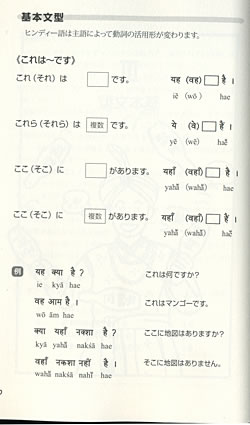 基本文型
ヒンディー語は主語によって動詞の活用形が変わります。
《これは〜です》
これ(それ)は □ です。 यह (वह) □ है ।
iē (wō) hae
これら(それら)は 複数 です。 ये (वे) □ हैं ।
yē (wē) haẽ
ここ(そこ)に □ があります。 यहाँ (वहाँ) □ है ।
yahā̃ (wahā̃) hae
ここ(そこ)に 複数 があります。 यहाँ (वहाँ) □ हैं ।
yahā̃ (wahā̃) haẽ
例 यह क्या है ? これは何ですか?
ie kyā hae
वह आम है । これはマンゴーです。
wō ām hae
क्या यहाँ नक्शा है ? ここに地図はありますか?
kyā yahā̃ nakśā hae
वहाँ नकशा नहीं है । そこに地図はありません。
wahā̃ nakśā nahī̃ hae